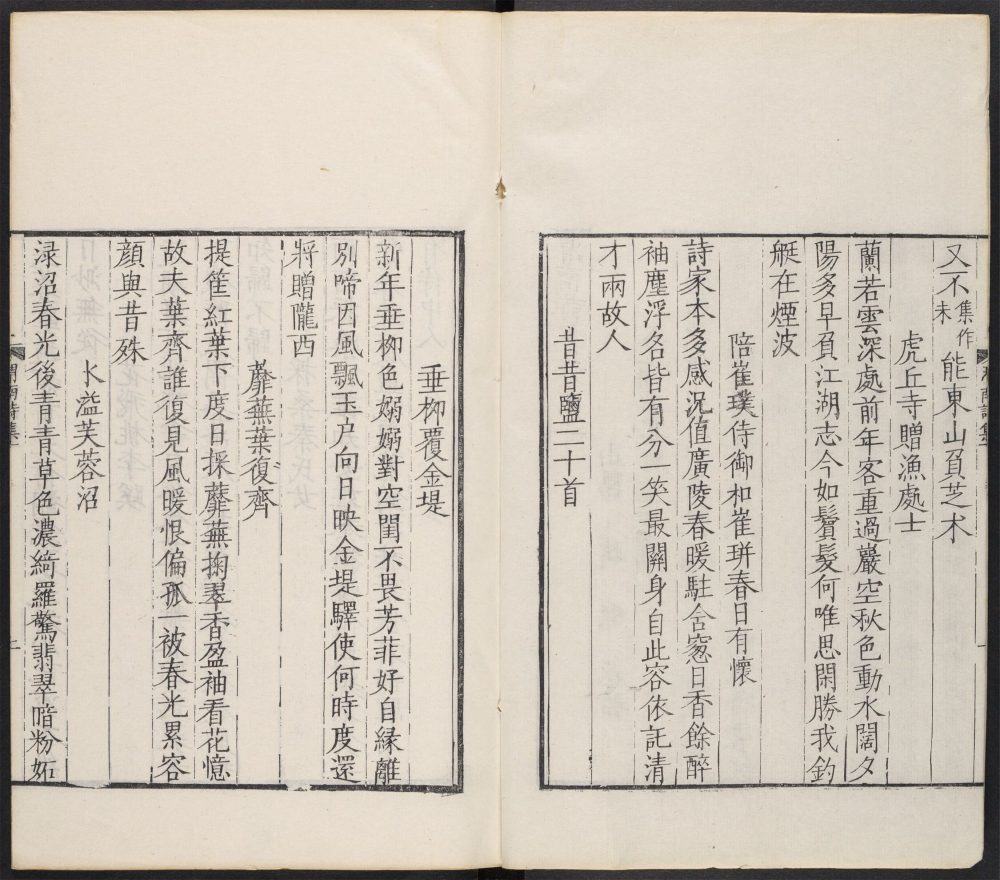 又不集作未能東山負芝朮
虎丘寺贈漁處士
蘭若雲深處前年客重過巖空秋色動水闊夕
陽多早負江湖志今如鬢髮何唯思閑勝我釣
艇在煙波
陪崔璞侍御和崔珙春日有懷
詩家本多感況值廣陵春暖駐含窻日香餘醉
袖塵浮名皆有分一笑最關身自此容依託清
才兩故人
昔昔鹽二十首
垂柳覆金堤
新年垂柳色嫋嫋對空閨不畏芳菲好自緣離
別啼因風飄玉户向日映金堤驛使何時度還
將贈隴西
蘼蕪葉復齊
提筐紅葉下度日採蘼蕪掬翠香盈袖看花憶
故夫葉齊誰復見風暖恨偏孤一被春光累容
顏與昔殊
水溢芙蓉沼
渌沼春光後青青草色濃綺羅驚翡翠暗粉妬